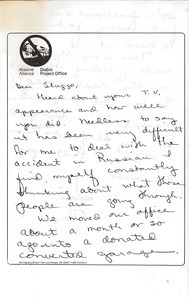 Abalone Alliance
Diablo Project Office
Dear
Heard about your T.V.
appearance and how well
you did. Needless to say
it has been very difficult
for me to deal with the
accident in Russia. I
find myself constantly
thinking about what those
people are going through.
We moved our office
about a month or so
ago into a donated
converted garage.